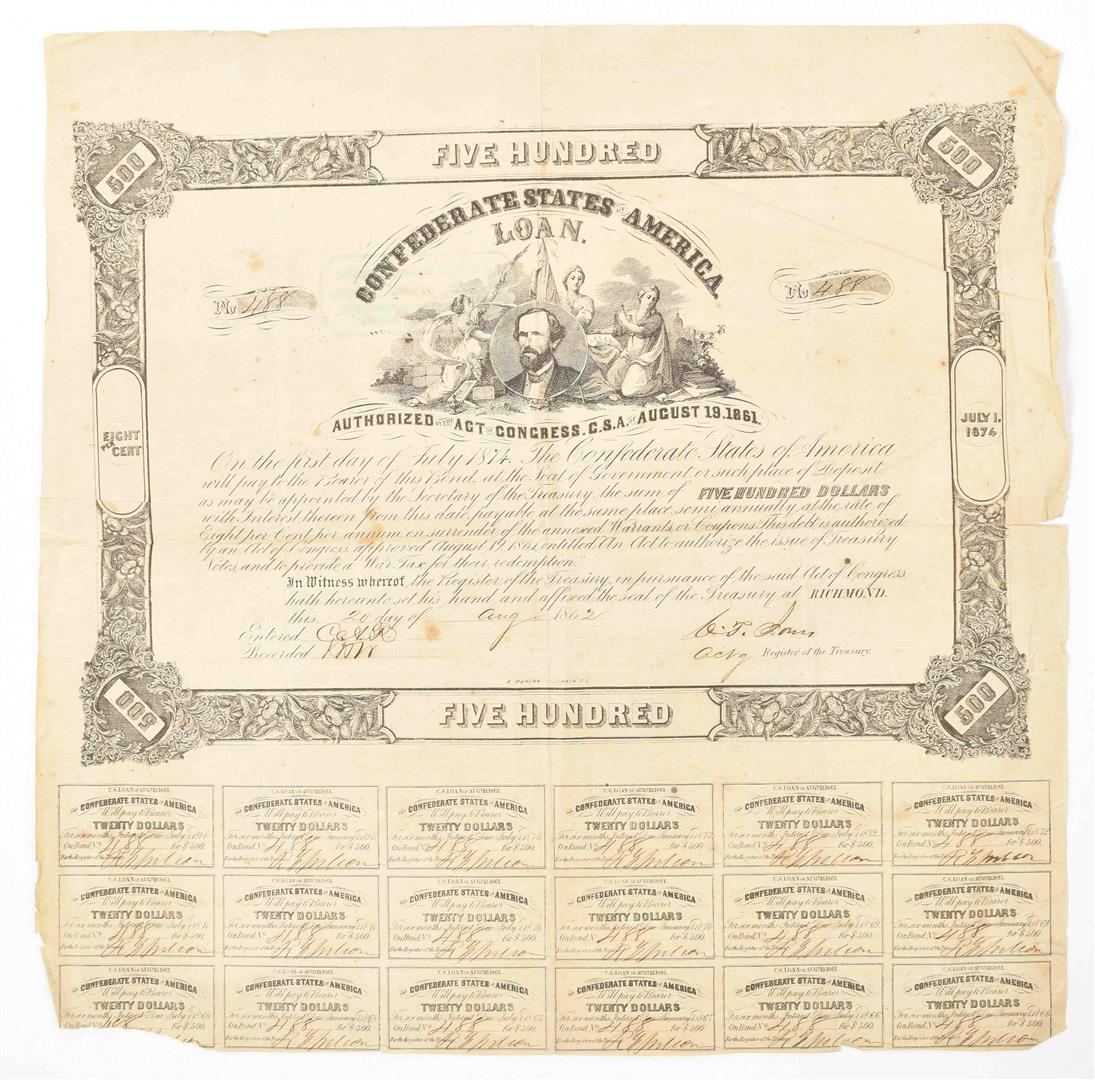 500
FIVE HUNDRED
500
CONFEDERATE STATES OF AMERICA
LOAN.
No 488
No 488
AUTHORIZED BY THE ACT OF CONGRESS. C.S.A. OF AUGUST 19. 1861.
EIGHT PER CENT
JULY 1. 1874
On the first day of July 1874. The Confederate States of America
will pay to the Bearer of this Bond, at the Seat of Government, or such place of Deposit
as may be appointed by the Secretary of the Treasury, the sum of FIVE HUNDRED DOLLARS
with Interest thereon from this date, payable at the same place semi annually, at the rate of
Eight per Cent, per annum, on surrender of the annexed Warrants or Coupons. This debt is authorized
by an Act of Congress, approved August 19, 1861, entitled "An Act, to authorize the issue of Treasury
Notes, and to provide a War Tax for their redemption."
In Witness whereof, the Register of the Treasury, in pursuance of the said Act of Congress,
hath hereunto set his hand, and affixed the seal of the Treasury, at RICHMOND.
this 20 day of Aug 1862
Entered
Recorded
Actg Register of the Treasury.
500
FIVE HUNDRED
500
C.S. LOAN OF AUG.19.1861.
THE CONFEDERATE STATES OF AMERICA
Will pay to Bearer
TWENTY DOLLARS
For six months Interest Due July 1, 1874
On Bond No 488 for $ 500.
For the Register of the Treasury
C.S. LOAN OF AUG.19.1861.
THE CONFEDERATE STATES OF AMERICA
Will pay to Bearer
TWENTY DOLLARS
On Bond No 488 for $ 500.
For the Register of the Treasury
C.S. LOAN OF AUG.19.1861.
THE CONFEDERATE STATES OF AMERICA
Will pay to Bearer
TWENTY DOLLARS
On Bond No 488 for $ 500.
For the Register of the Treasury
C.S. LOAN OF AUG.19.1861.
THE CONFEDERATE STATES OF AMERICA
Will pay to Bearer
TWENTY DOLLARS
For six months Interest Due January 1, 1873.
On Bond No 488 for $ 500.
For the Register of the Treasury
C.S. LOAN OF AUG.19.1861.
THE CONFEDERATE STATES OF AMERICA
Will pay to Bearer
TWENTY DOLLARS
For six months Interest Due July 1, 1872.
On Bond No 488 for $ 500.
For the Register of the Treasury
C.S. LOAN OF AUG.19.1861.
THE CONFEDERATE STATES OF AMERICA
Will pay to Bearer
TWENTY DOLLARS
For six months Interest Due January 1, 1872.
On Bond No 488 for $ 500.
For the Register of the Treasury
C.S. LOAN OF AUG.19.1861.
THE CONFEDERATE STATES OF AMERICA
Will pay to Bearer
TWENTY DOLLARS
For six months Interest Due July 1, 1871
On Bond No 488 for $ 500.
For the Register of the Treasury
C.S. LOAN OF AUG.19.1861.
THE CONFEDERATE STATES OF AMERICA
Will pay to Bearer
TWENTY DOLLARS
For six months Interest Due January 1, 1871
On Bond No 488 for $ 500.
For the Register of the Treasury
C.S. LOAN OF AUG.19.1861.
THE CONFEDERATE STATES OF AMERICA
Will pay to Bearer
TWENTY DOLLARS
For six months Interest Due July 1, 1870.
On Bond No 488 for $ 500.
For the Register of the Treasury
C.S. LOAN OF AUG.19.1861.
THE CONFEDERATE STATES OF AMERICA
Will pay to Bearer
TWENTY DOLLARS
For six months Interest Due January 1, 1870
On Bond No 488 for $ 500.
For the Register of the Treasury
C.S. LOAN OF AUG.19.1861.
THE CONFEDERATE STATES OF AMERICA
Will pay to Bearer
TWENTY DOLLARS
For six months Interest Due July 1, 1869.
On Bond No 488 for $ 500.
For the Register of the Treasury
C.S. LOAN OF AUG.19.1861.
THE CONFEDERATE STATES OF AMERICA
Will pay to Bearer
TWENTY DOLLARS
For six months Interest Due January 1, 1869.
On Bond No 488 for $ 500.
For the Register of the Treasury
C.S. LOAN OF AUG.19.1861.
THE CONFEDERATE STATES OF AMERICA
Will pay to Bearer
TWENTY DOLLARS
For six months Interest Due July 1, 1868
On Bond No 488 for $ 500.
C.S. LOAN OF AUG.19.1861.
THE CONFEDERATE STATES OF AMERICA
Will pay to Bearer
TWENTY DOLLARS
For six months Interest Due January 1, 1868
On Bond No 488 for $ 500.
For the Register of the Treasury
C.S. LOAN OF AUG.19.1861.
THE CONFEDERATE STATES OF AMERICA
Will pay to Bearer
TWENTY DOLLARS
For six months Interest Due July 1, 1867.
On Bond No 488 for $ 500.
For the Register of the Treasury
C.S. LOAN OF AUG.19.1861.
THE CONFEDERATE STATES OF AMERICA
Will pay to Bearer
TWENTY DOLLARS
For six months Interest Due January 1, 1867.
On Bond No 488 for $ 500.
For the Register of the Treasury
C.S. LOAN OF AUG.19.1861.
THE CONFEDERATE STATES OF AMERICA
Will pay to Bearer
TWENTY DOLLARS
For six months Interest Due July 1, 1866.
On Bond No 488 for $ 500.
For the Register of the Treasury
C.S. LOAN OF AUG.19.1861.
THE CONFEDERATE STATES OF AMERICA
Will pay to Bearer
TWENTY DOLLARS
For six months Interest Due January 1, 1866.
On Bond No 488 for $ 500.
For the Register of the Treasury